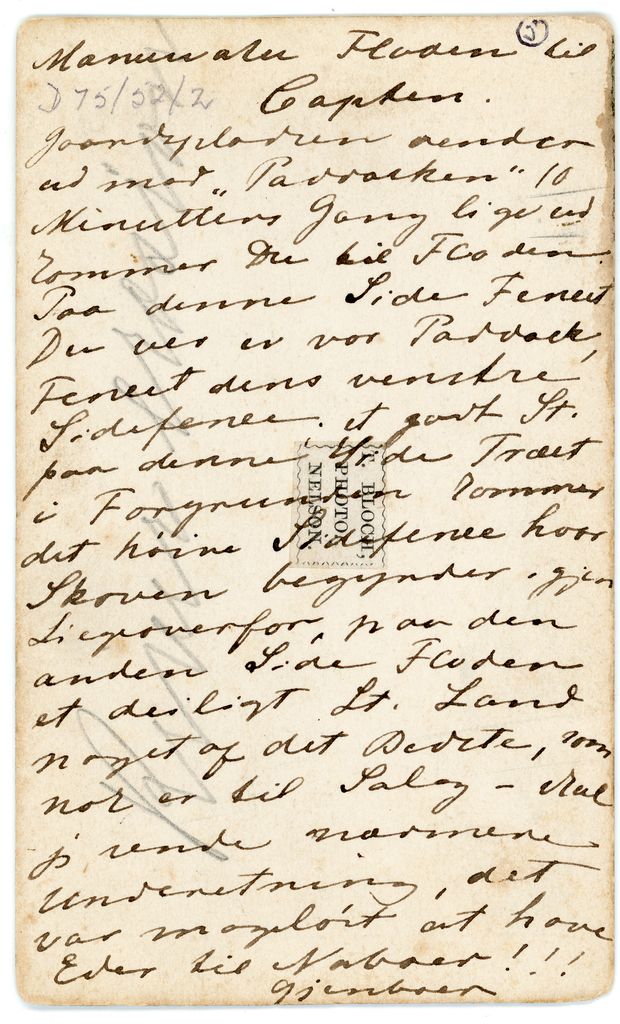 Manuwatu Floden til
D 75/52/2
Capten.
Gaardspladsen vender
ud mod „Paddocken" 10
Minutters Gang lige ud
kommer Du til Floden
Paa denne Side Fencet
Du ser er vor Paddock,
Fencet dens venstre
Sidefence. et godt St.
paa denne Side Træet
i Forgrunden kommer
det höire Sidefence hvor
Skoven begynder. gjen
Ligeoverfor, paa den
anden Side Floden
et deiligt St. Land
noget af det Bedste, som
nok er til Salg – skal
jeg sende nærmere
Underetning, det
var mageløst at have
Eder til Naboer!!!
Gjenboer
F. BLOCH,
PHOTO,
NELSON.